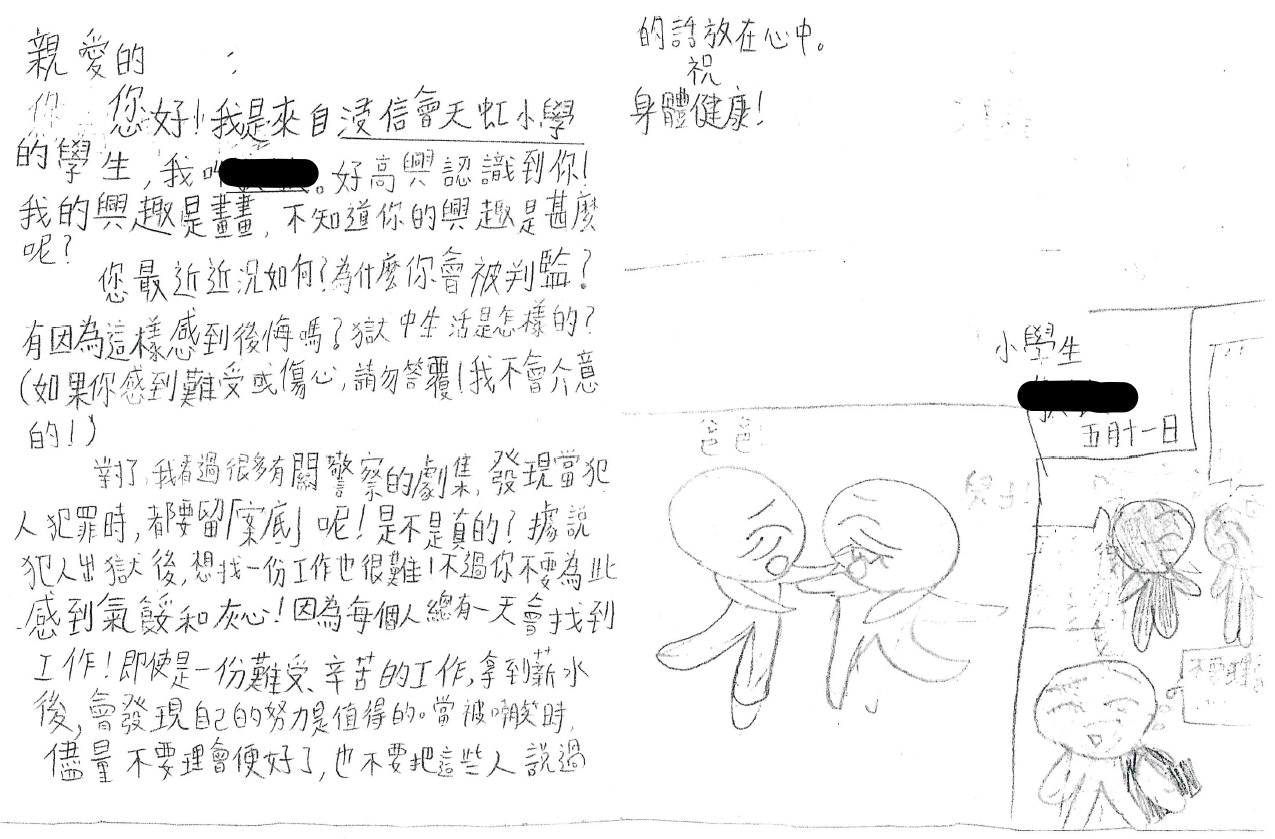 親愛的　　：
您好！我是來自浸信會天虹小學
的學生，我叫　　。好高興認識到你！
我的興趣是畫畫，不知道你的興趣是甚麼
呢？
您最近近況如何？為什麼你會被判監？
有因為這樣感到後悔嗎？獄中生活是怎樣的？
（如果你感到難受或傷心，請勿答覆！我不會介意
的！）
對了，我看過很多有關警察的劇集，發現當犯
人犯罪時，都要留「案底」呢！是不是真的？據說
犯人出獄後，想找一份工作也很難！不過你不要為此
感到氣餒和灰心！因為每個人總有一天會找到
工作！即使是一份難受、辛苦的工作，拿到薪水
後，會發現自己的努力是值得的。當被嘲笑時，
儘量不要理會便好了，也不要把這些人說過
的話放在心中。
祝
身體健康！
小學生
五月十一日
爸爸
不要理